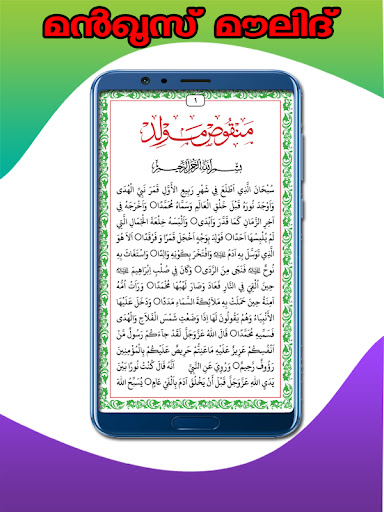 മൻഖൂസ് മൗലിദ്
١
منقوص مولد
بِسْمِ اللهِ الرَّحْمٰنِ الرَّحِيْمِ
سُبْحَانَ الَّذِي اَطْلَعَ فِي شَهْرِ رَبِيعِ الْأَوَّلِ قَمَرَ نَبِيِّ الْهُدَى
وَاَوْجَدَ نُورَهُ قَبْلَ خَلْقِ الْعَالَمِ وَسَمَّاهُ مُحَمَّدًا○ وَاَخْرَجَهُ فِي
آخِرِ الزَّمَانِ كَمَا قَدَّرَ وَاَبْدَى○ وَاَلْبَسَهُ خِلْعَةَ الْجَمَالِ الَّتِي
لَمْ يُلْبِسْهَا اَحَدًا○ وُلِدَ بِوَجْهٍ اَخْجَلَ قَمَرًا وَّ فَرْقَدًا○ اَلاَ هُوَ
الَّذِي تَوَسَّلَ بِهِ آدَمُ وَافْتَخَرَ بِكَوْنِهِ وَالِدًا○ وَاسْتَغَاثَ بِهِ
نُوحٌ فَنَجَى مِنَ الرَّدَى○ وَكَانَ فِي صُلْبِ اِبْرَاهِيمَ
حِينَ اُلْقِيَ فِي النَّارِ فَعَادَ وَصَارَ لَهَبُهَا مُخْمَدًا○ وَرَأَتْ اُمُّهُ
آمِنَةُ حِينَ حَمَلَتْ بِهِ مَلاَئِكَةَ السَّمَاءِ مَدَدًا○ وَدَخَلَ عَلَيْهَا
الْأَنْبِيَاءُ وَهُمْ يَقُولُونَ لَهَا اِذَا وَضَعْتِ شَمْسَ الْفَلاَحِ وَالْهُدَى
فَسَمِّيهِ مُحَمَّدًا○ قَالَ اللهُ عَزَّوَجَلَّ لَقَدْ جَاءَكُمْ رَسُولٌ مِّنْ
اَنْفُسِكُمْ عَزِيزٌ عَلَيْهِ مَاعَنِتُّمْ حَرِيصٌ عَلَيْكُمْ بِالْمُؤْمِنِينَ
رَؤُوفٌ رَّحِيمٌ○ وَرُوِيَ عَنِ النَّبِيِّ اَنَّهُ قَالَ كُنْتُ نُورًا بَيْنَ
يَدَيِ اللهِ عَزَّوَجَلَّ قَبْلَ اَنْ يَخْلُقَ آدَمَ بِاَلْفَيْ عَامٍ○ يُسَبِّحُ اللهَ